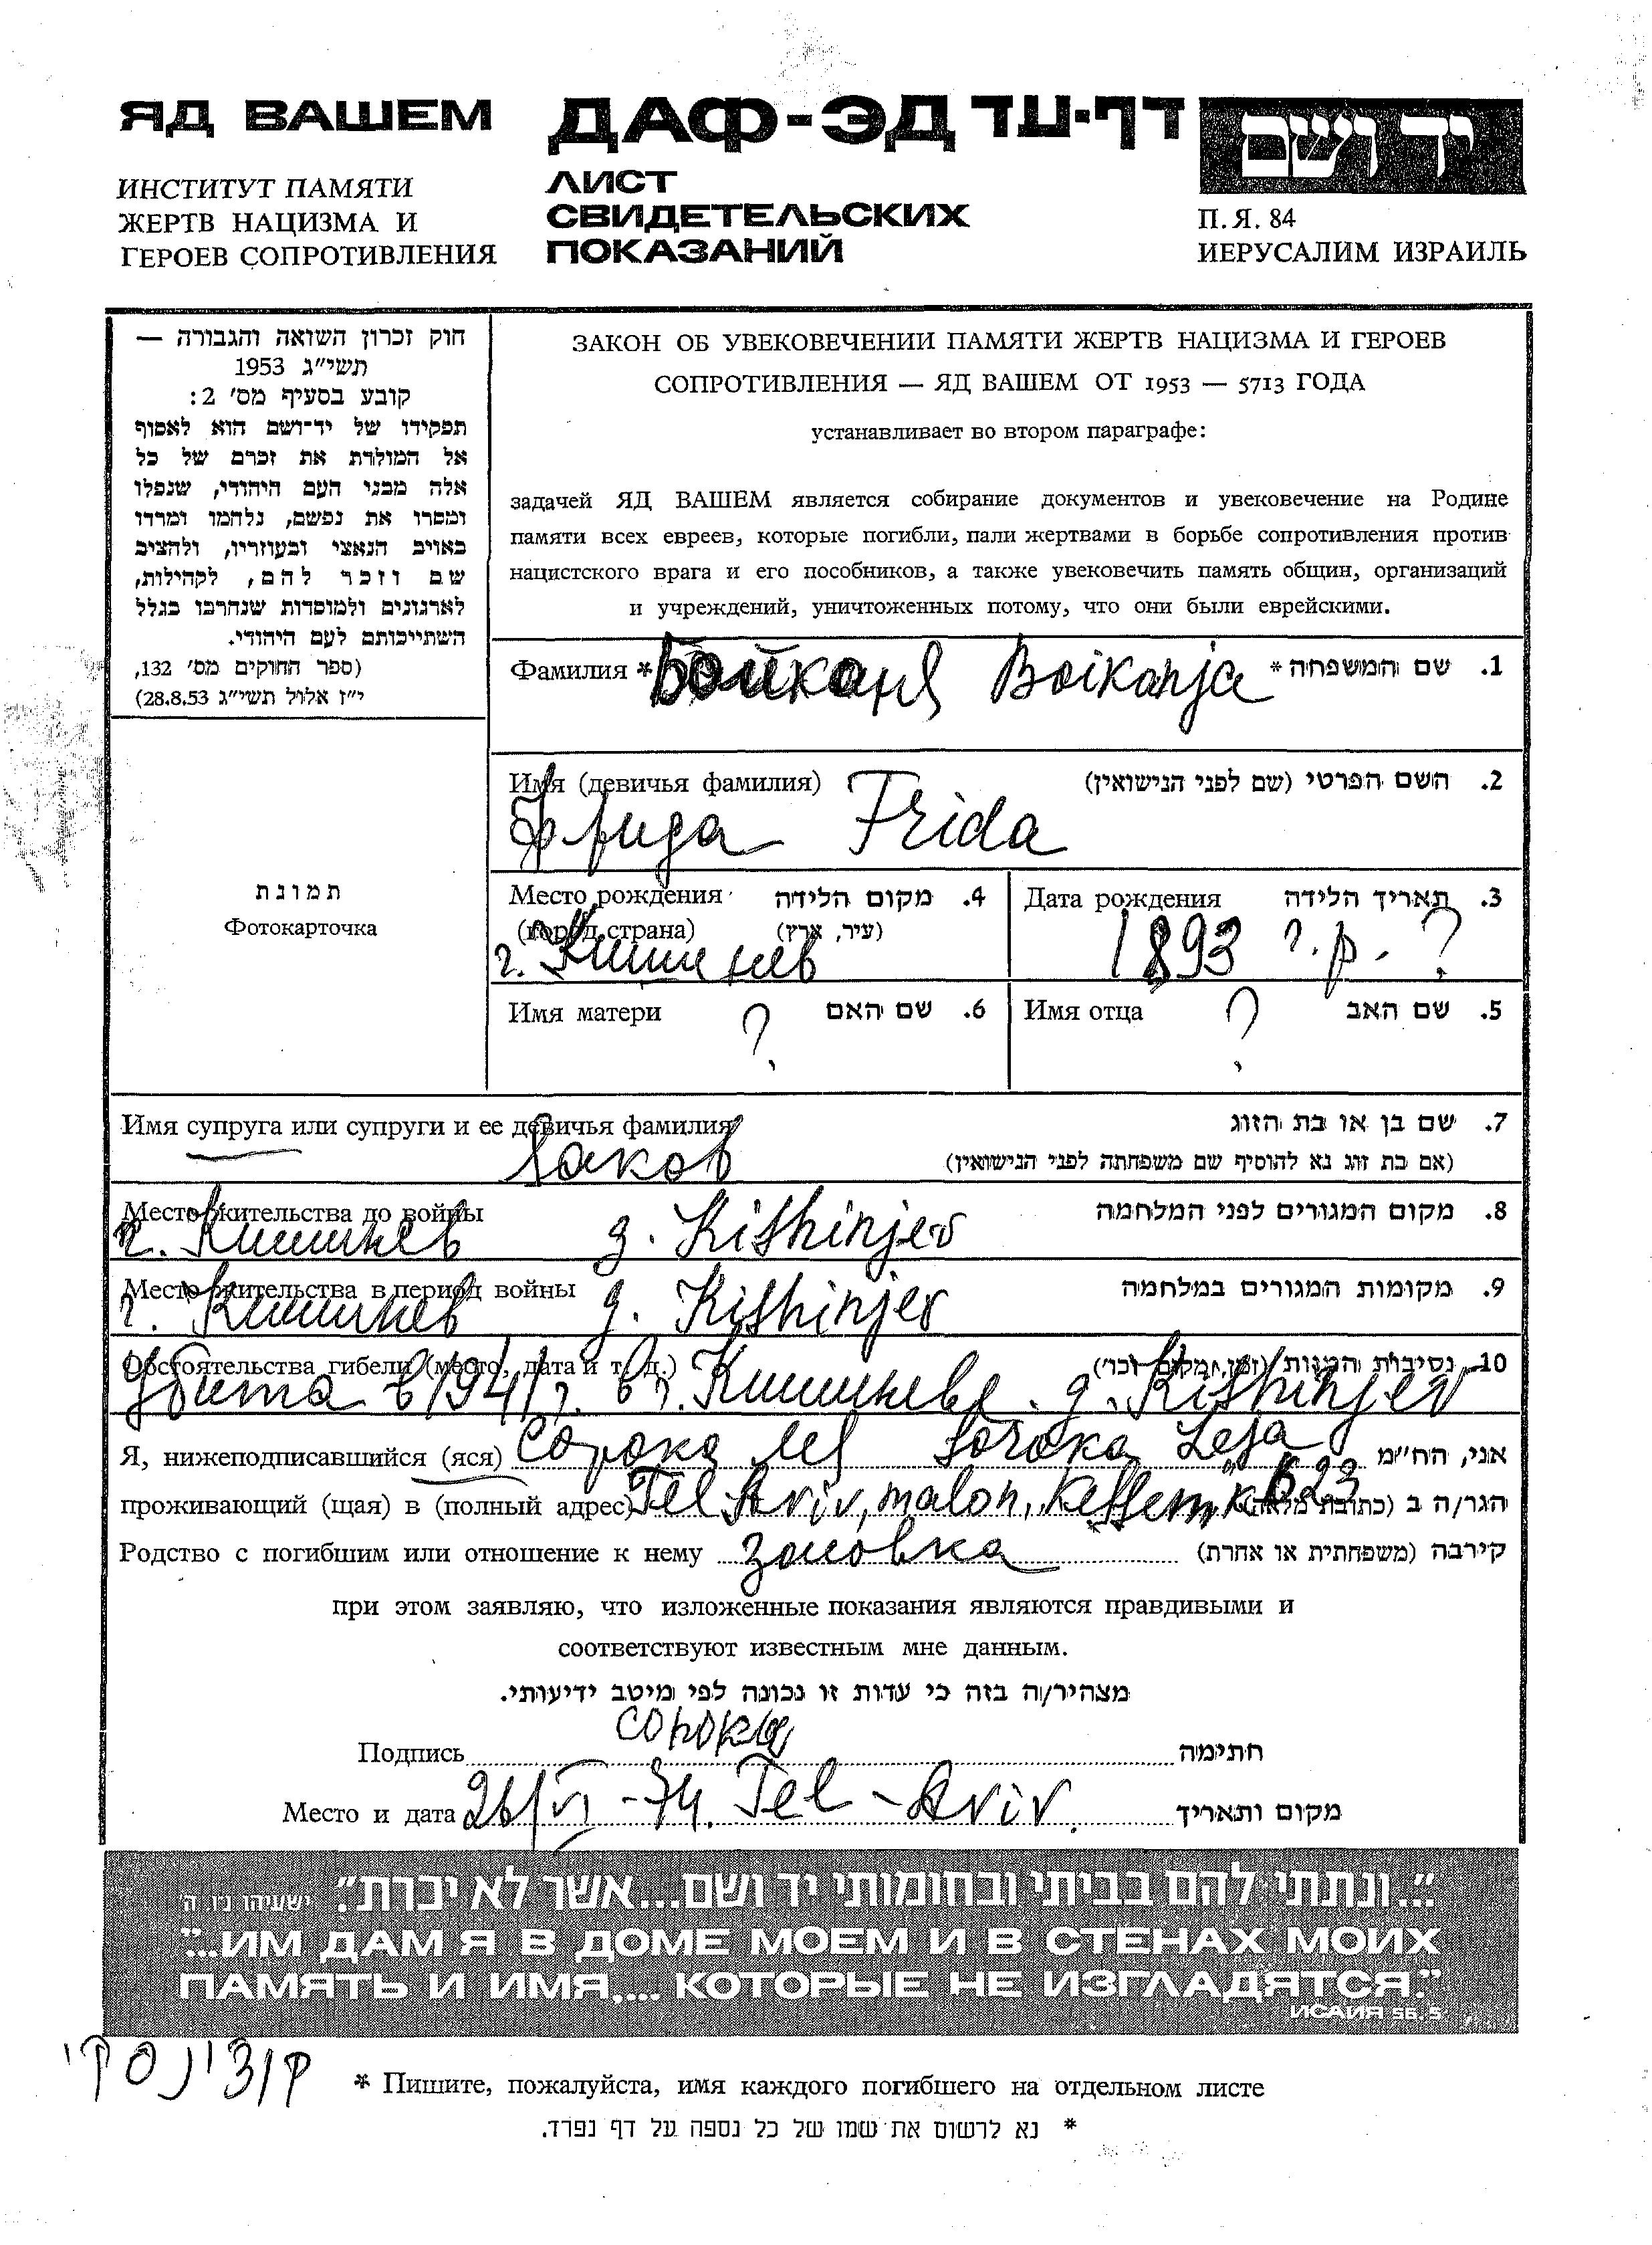 ЯД ВАШЕМ
ИНСТИТУТ ПАМЯТИ
ЖЕРТВ НАЦИЗМА И
ГЕРОЕВ СОПРОТИВЛЕНИЯ
ДАФ-ЭД דף-עד
ЛИСТ
СВИДЕТЕЛЬСКИХ
ПОКАЗАНИЙ
יד ושם
П. Я. 84
ИЕРУСАЛИМ ИЗРАИЛЬ
חוק זכרון השואה והגבורה —
תשי״ג 1953
קובע בסעיף מס׳ 2:
תפקידו של יד־ושם הוא לאסוף
אל המולדת את זכרם של כל
אלה מבני העם היהודי, שנפלו
ומסרו את נפשם, נלחמו ומרדו
באויב הנאצי ובעוזריו, ולהציב
שם וזכר להם, לקהילות,
לארגונים ולמוסדות שנחרבו בגלל
השתייכותם לעם היהודי.
(ספר החוקים מס׳ 132,
י״ז אלול תשי״ג 28.8.53)
ЗАКОН ОБ УВЕКОВЕЧЕНИИ ПАМЯТИ ЖЕРТВ НАЦИЗМА И ГЕРОЕВ
СОПРОТИВЛЕНИЯ — ЯД ВАШЕМ ОТ 1953 — 5713 ГОДА
устанавливает во втором параграфе:
задачей ЯД ВАШЕМ является собирание документов и увековечение на Родине
памяти всех евреев, которые погибли, пали жертвами в борьбе сопротивления против
нацистского врага и его пособников, а также увековечить память общин, организаций
и учреждений, уничтоженных потому, что они были еврейскими.
Фамилия * Бойканя Boikanja 1. שם המשפחה *
Имя (девичья фамилия) 2. השם הפרטי (שם לפני הנישואין)
Фрида Frida
Место рождения 4. מקום הלידה
(город, страна) (עיר, ארץ)
г. Кишинев
Дата рождения 3. תאריך הלידה
1893 г.р. ?
Имя матери ? 6. שם האם
Имя отца ? 5. שם האב
תמונת
Фотокарточка
Имя супруга или супруги и ее девичья фамилия 7. שם בן או בת הזוג
Яаков (אם בת זוג נא להוסיף שם משפחתה לפני הנישואין)
Место жительства до войны 8. מקום המגורים לפני המלחמה
г. Кишинев g. Kishinjev
Место жительства в период войны 9. מקומות המגורים במלחמה
г. Кишинев g. Kishinjev
Обстоятельства гибели (место, дата и т. д.) 10. נסיבות המוות (זמן, מקום וכו׳)
Убита в 1941 г. в г. Кишиневе. g. Kishinjev
Я, нижеподписавшийся (яся) Сорока Лея Soroka Leja אני, הח״מ
проживающий (щая) в (полный адрес) Tel Aviv, malon, к 623 הגר/ה ב (כתובת מלאה)
Родство с погибшим или отношение к нему золовка קירבה (משפחתית או אחרת)
при этом заявляю, что изложенные показания являются правдивыми и
соответствуют известным мне данным.
מצהיר/ה בזה כי עדות זו נכונה לפי מיטב ידיעותי.
Подпись Сорока חתימה
Место и дата 26/VI-74. Tel-Aviv. מקום ותאריך
"...ונתתי להם בביתי ובחומותי יד ושם...אשר לא יכרת". ישעיהו נ״ו, ה׳
"...ИМ ДАМ Я В ДОМЕ МОЕМ И В СТЕНАХ МОИХ
ПАМЯТЬ И ИМЯ.... КОТОРЫЕ НЕ ИЗГЛАДЯТСЯ."
ИСАИЯ 56. 5
* Пишите, пожалуйста, имя каждого погибшего на отдельном листе
* נא לרשום את שמו של כל נספה על דף נפרד.